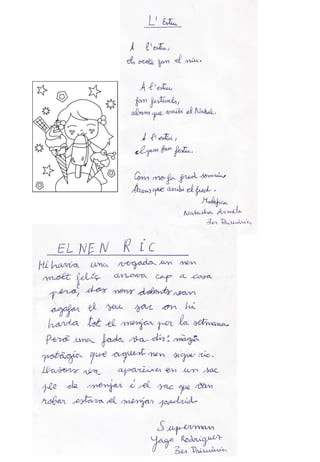 L'Estiu
A l'estiu,
els ocells fan el niu.
A l'estiu
fan festivals,
abans que arribi el Nadal.
A l'estiu,
fan festa.
Com no fa fred somriu
Abans que arribi el fred.
Natasha
3er Primària
EL NEN RIC
Hi havia una vegada un nen
molt feliç anava cap a casa
però, dos nens dolents van
agafar el seu sac on hi
havia tot el menjar per la setmana
Però una fada va dir: màgia
potàgia que aquest nen sigui ric.
Llavors van aparèixer en un sac
ple de menjar i el sac que van
robar estava el menjar podrid.
Superman
Yago Rodríguez
3er Primària